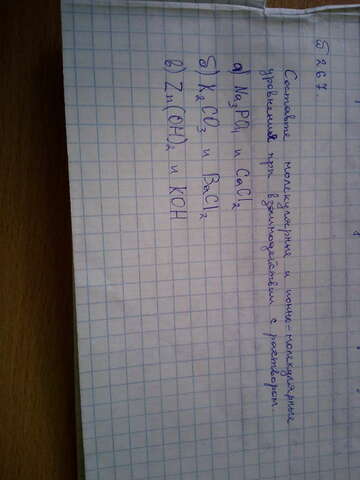 Б 267
Составте молекулярные и ионно-молекулярные
уравнения при взаимодействии с раствором
а) Na₃PO₄ и CaCl₂
б) K₂CO₃ и BaCl₂
в) Zn(OH)₂ и KOH